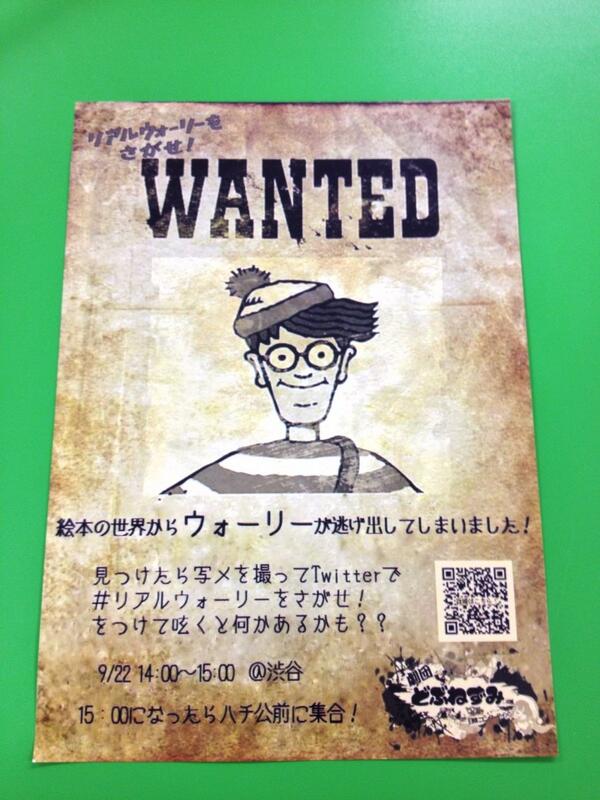 リアルウォーリーを
さがせ!
WANTED
絵本の世界からウォーリーが逃げ出してしまいました!
見つけたら写メを撮ってTwitterで
#リアルウォーリーをさがせ!
をつけて呟くと何かあるかも??
9/22 14:00～15:00 @渋谷
15:00になったらハチ公前に集合!
劇団
どぶねずみ